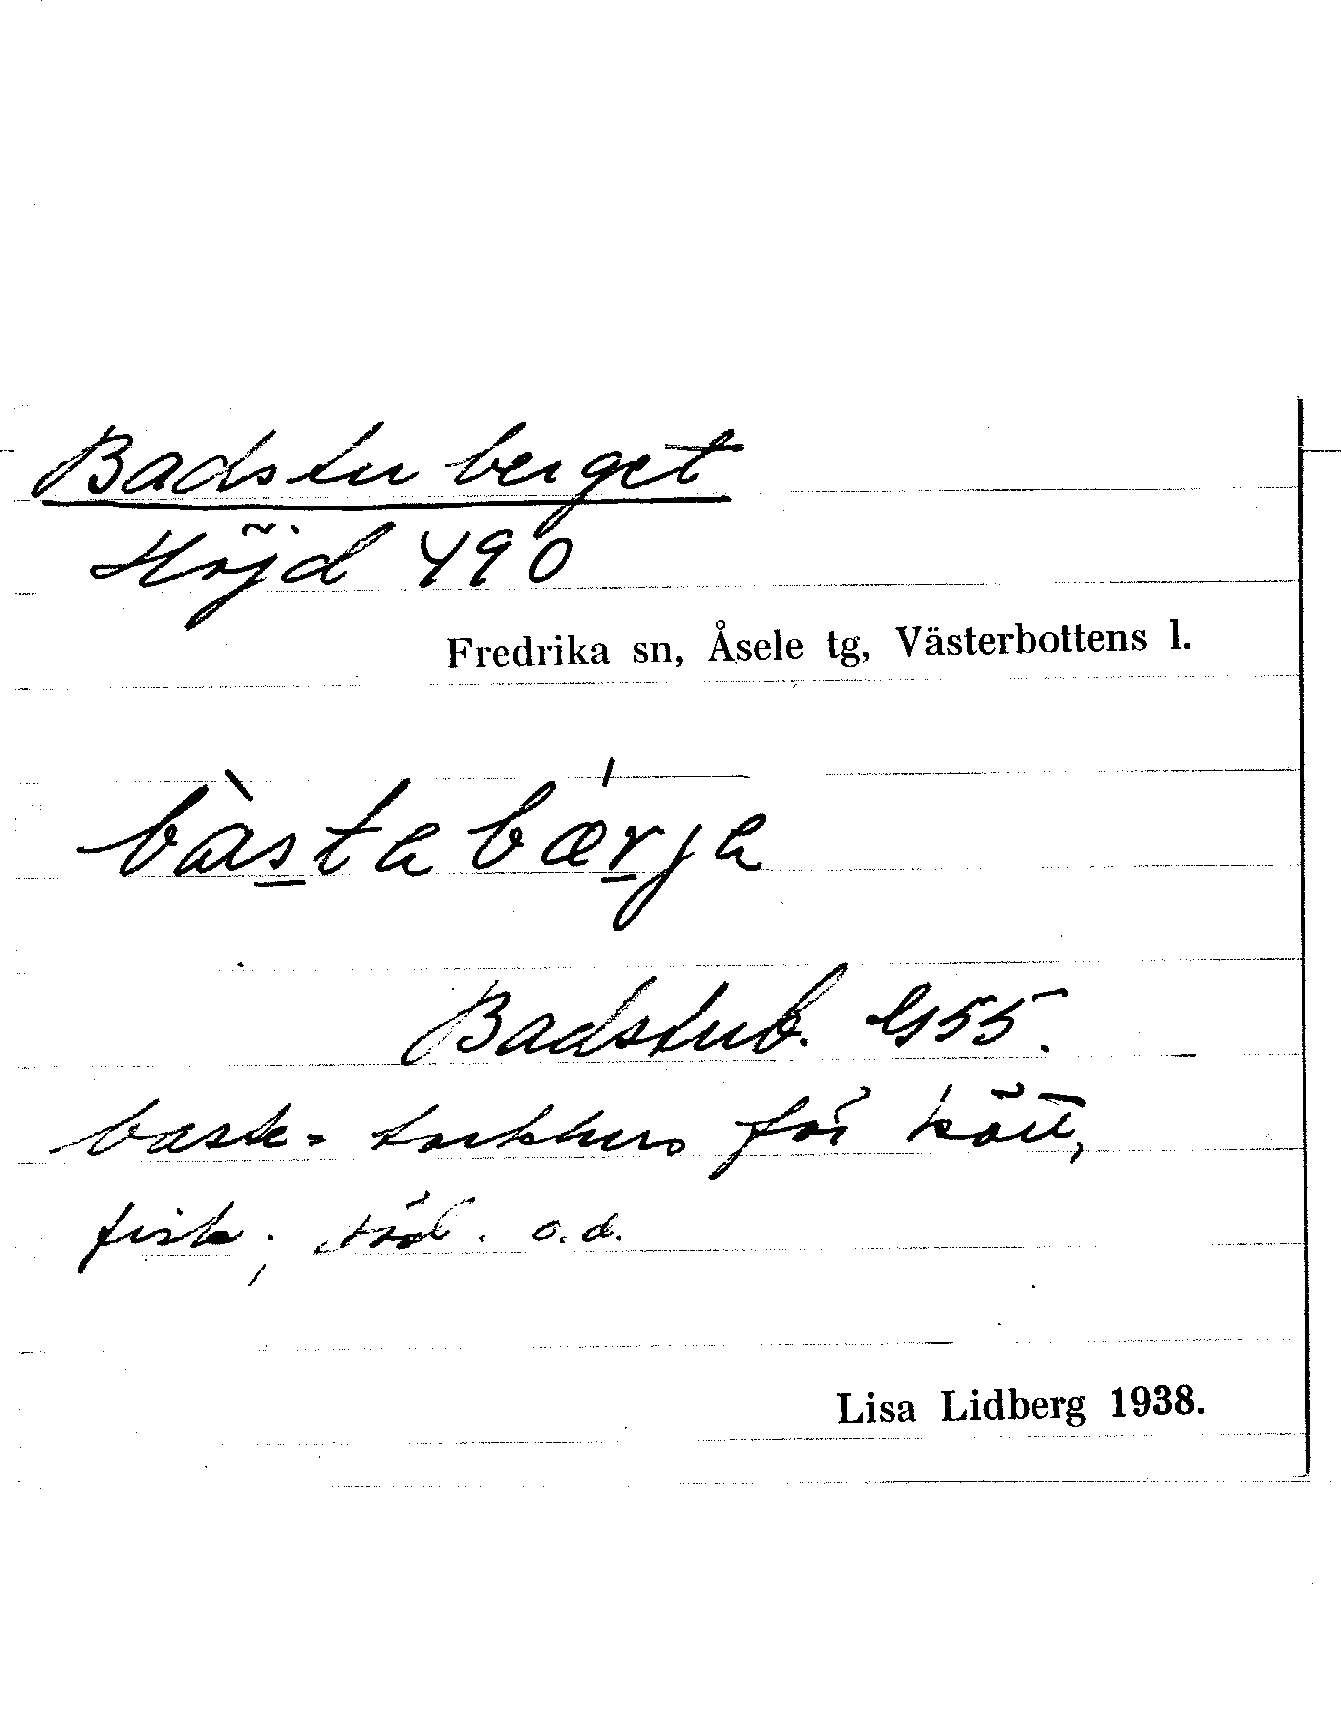 Badstuberget
Höjd 490
Fredrika sn, Åsele tg, Västerbottens l.
bàstabǽrja
Badstub. G55.
basta = torkhus för kött,
fisk, säd. o.d.
Lisa Lidberg 1938.